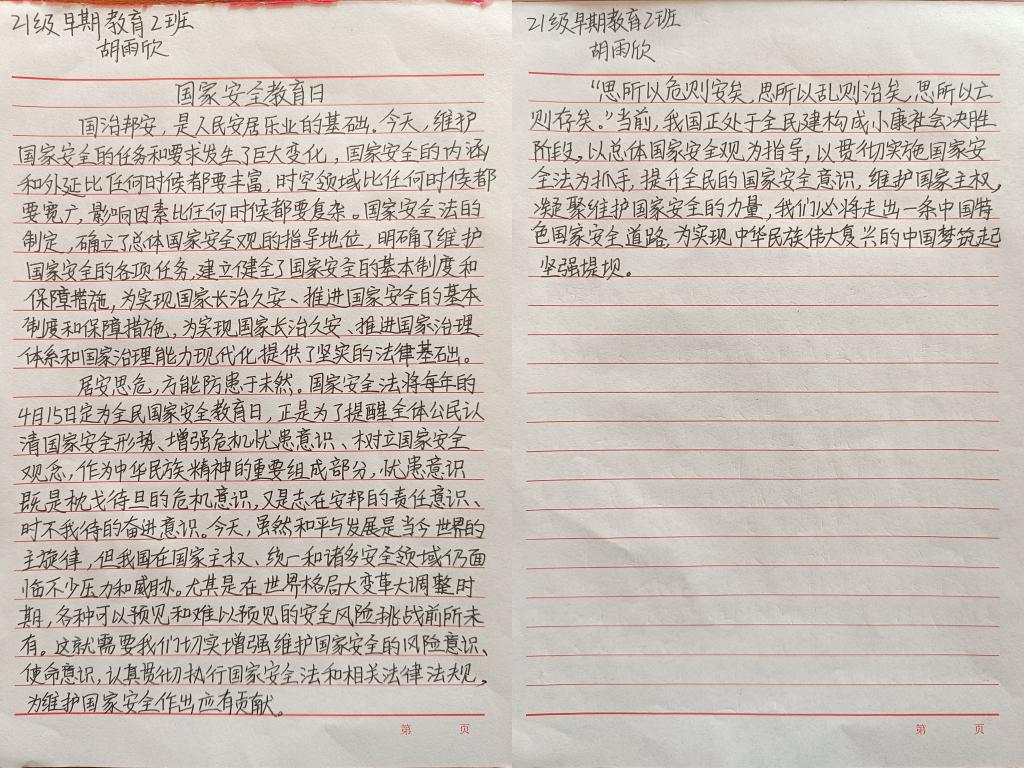 21级早期教育2班
胡雨欣
国家安全教育日
国治邦安，是人民安居乐业的基础。今天，维护
国家安全的任务和要求发生了巨大变化，国家安全的内涵
和外延比任何时候都要丰富，时空领域比任何时候都
要宽广，影响因素比任何时候都要复杂。国家安全法的
制定，确立了总体国家安全观的指导地位，明确了维护
国家安全的各项任务，建立健全了国家安全的基本制度和
保障措施，为实现国家长治久安、推进国家安全的基本
制度和保障措施，为实现国家长治久安、推进国家治理
体系和国家治理能力现代化提供了坚实的法律基础。
居安思危，方能防患于未然。国家安全法将每年的
4月15日定为全民国家安全教育日，正是为了提醒全体公民认
清国家安全形势、增强危机忧患意识、树立国家安全
观念，作为中华民族精神的重要组成部分，忧患意识
既是枕戈待旦的危机意识，又是志在安邦的责任意识、
时不我待的奋进意识。今天，虽然和平与发展是当今世界的
主旋律，但我国在国家主权、统一和诸多安全领域仍面
临不少压力和威胁。尤其是在世界格局大变革大调整时
期，各种可以预见和难以预见的安全风险挑战前所未
有。这就需要我们切实增强维护国家安全的风险意识、
使命意识，认真贯彻执行国家安全法和相关法律法规，
为维护国家安全作出应有贡献。
第 页
21级早期教育2班
胡雨欣
“思所以危则安矣，思所以乱则治矣，思所以亡
则存矣。”当前，我国正处于全民建构成小康社会决胜
阶段，以总体国家安全观为指导，以贯彻实施国家安
全法为抓手，提升全民的国家安全意识，维护国家主权，
凝聚维护国家安全的力量，我们必将走出一条中国特
色国家安全道路，为实现中华民族伟大复兴的中国梦筑起
坚强堤坝。
第 页